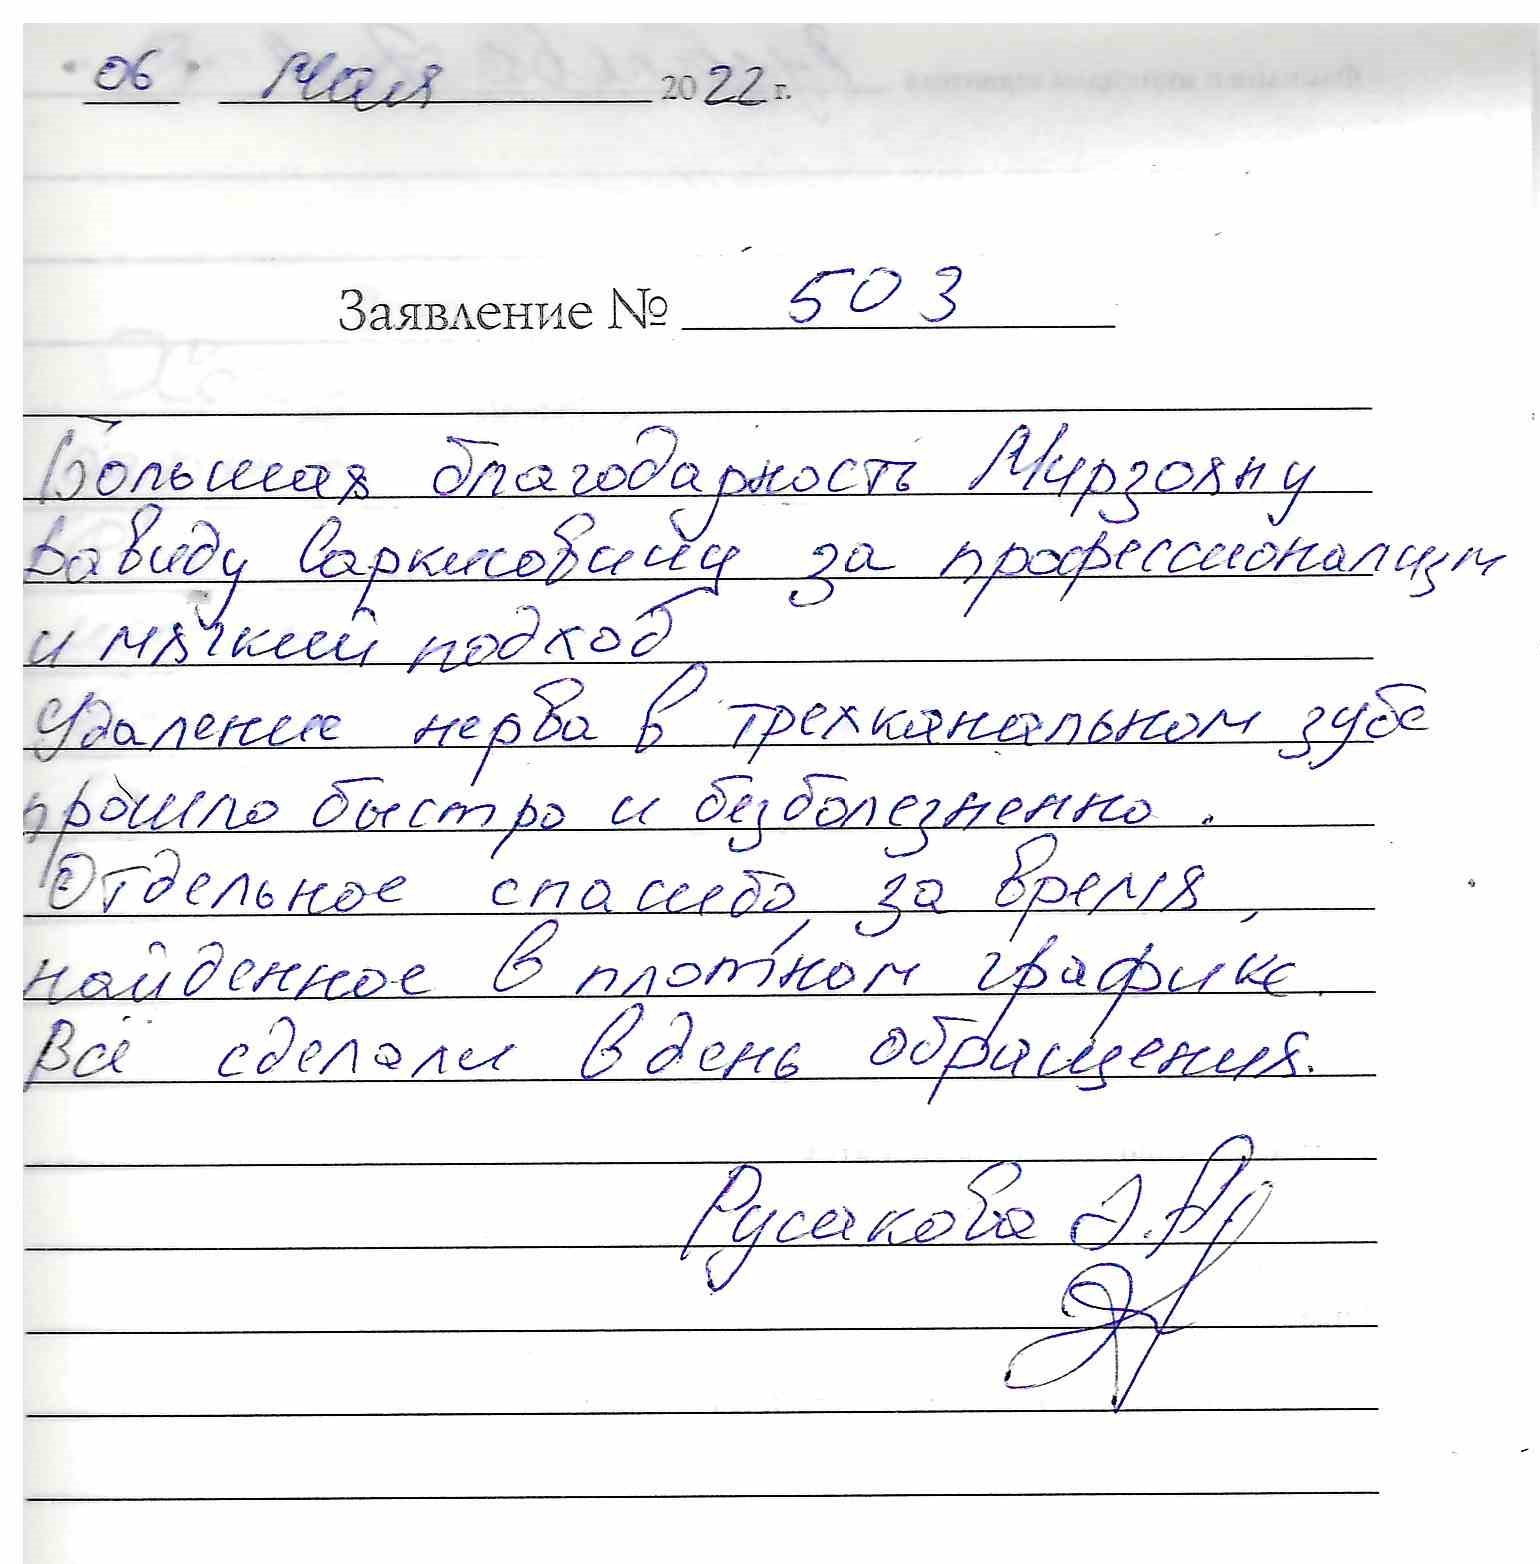 "06" Мая 2022 г.
Заявление № 503
Большая благодарность Мирзояну
Давиду Саркисовичу за профессионализм
и мягкий подход
Удаление нерва в трехканальном зубе
прошло быстро и безболезненно.
Отдельное спасибо за время,
найденное в плотном графике.
Всё сделали в день обращения.
Русакова